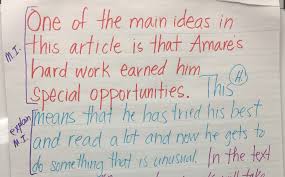 One of the main ideas in
M.I.
this article is that Amare's
hard work earned him
special opportunities. This
A
explain M.I.
means that he has tried his best
and read a lot and now he gets to
do something that is unusual. In the text
take